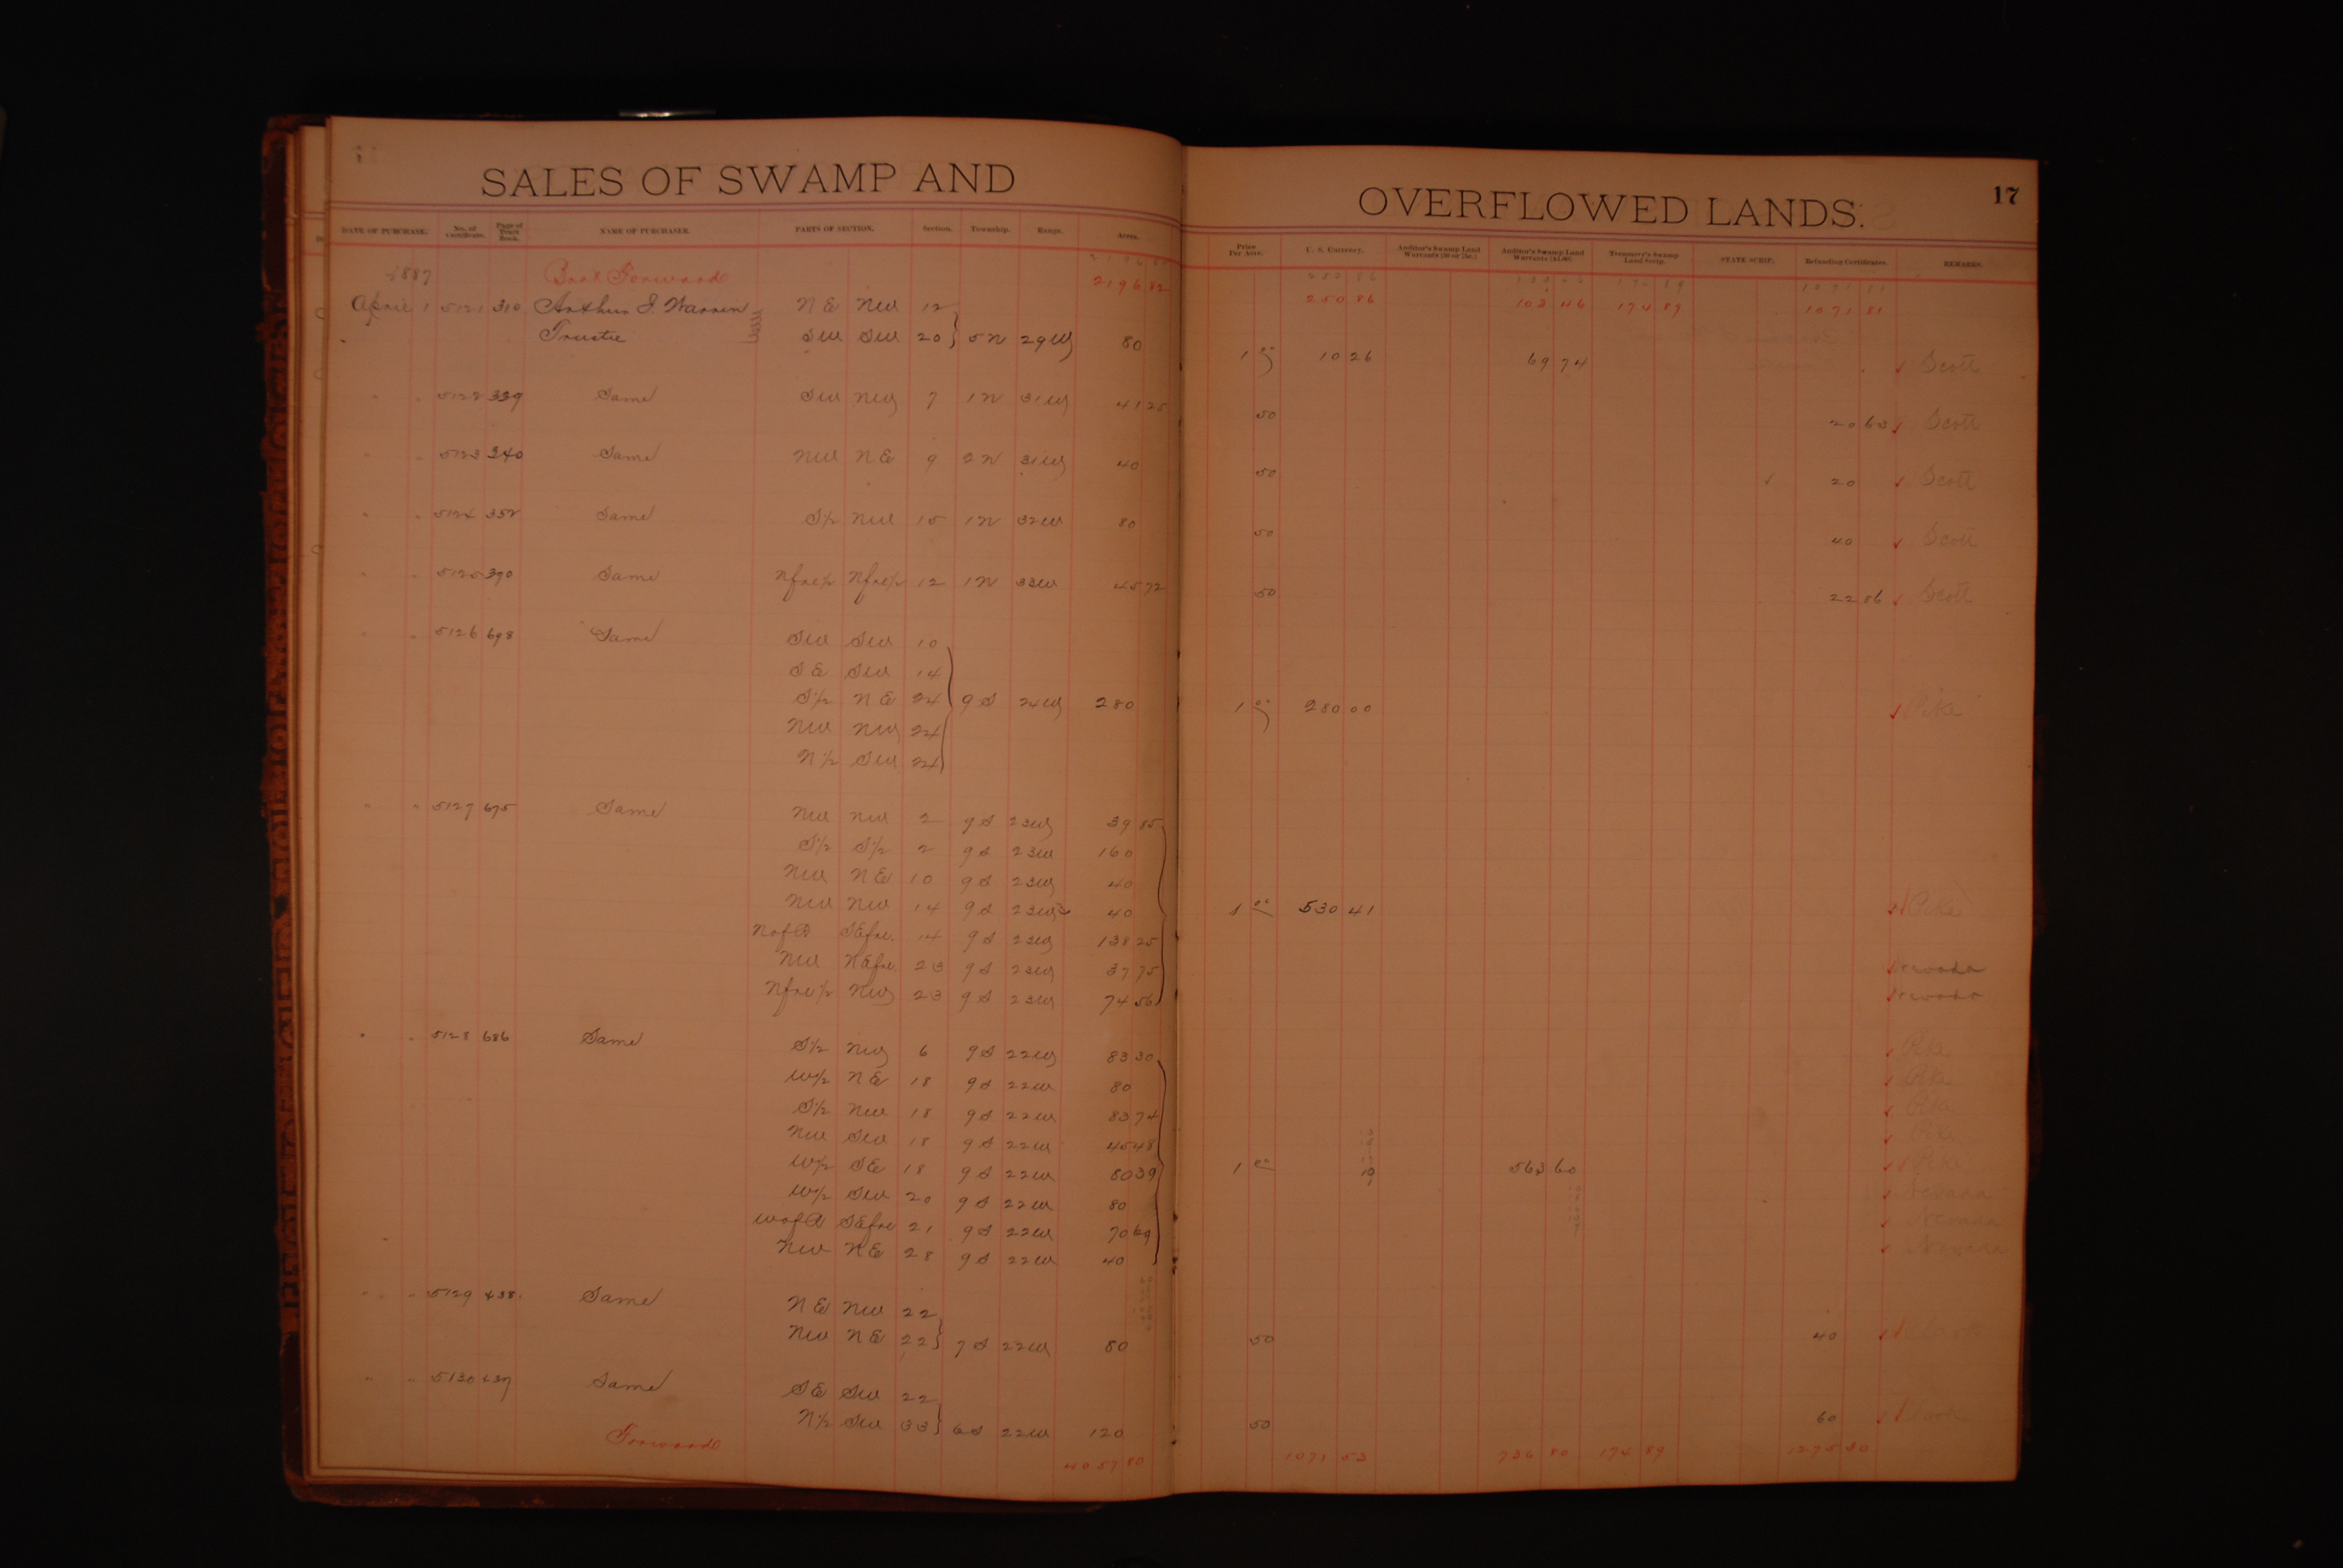 SALES OF SWAMP AND OVERFLOWED LANDS. 17
DATE OF PURCHASE. No. of Certificate. Page of Tract Book. NAME OF PURCHASER. PARTS OF SECTION. Section. Township. Range. Acres. Price Per Acre. U. S. Currency. Auditor's Swamp Land Warrants (50 or 75c.) Auditor's Swamp Land Warrants ($1.00) Treasurer's Swamp Land Scrip. STATE SCRIP. Refunding Certificates. REMARKS.
1887 Bro't Forward 2196 82 250 86 103 46 174 89 1071 81
April 1 5121 310 Arthur J. Warren NE NW 12
Trustee SW SW 20 5N 29W 80 1 00 10 26 69 74 Scott
" " 5122 339 Same SW NW 7 1N 31W 41 25 50 20 63 Scott
" " 5123 340 Same NW NE 9 2N 31W 40 50 20 Scott
" " 5124 352 Same S½ NW 15 1N 32W 80 50 40 Scott
" " 5125 390 Same Nfrc½ Nfrc½ 12 1N 33W 45 72 50 22 86 Scott
" " 5126 698 Same SW SW 10
SE SW 14
S½ NE 24 9S 24W 280 1 00 280 00 Pike
NW NW 24
N½ SW 24
" " 5127 675 Same NW NW 2 9S 23W 39 85
S½ S½ 2 9S 23W 160
NW NE 10 9S 23W 40
NW NW 14 9S 23W 40 1 00 530 41 Pike
N of R SEfrc. 14 9S 23W 138 25
NW NEfrc 23 9S 23W 37 75 Nevada
Nfrc½ NW 23 9S 23W 74 56 Nevada
" " 5128 686 Same S½ NW 6 9S 22W 83 30 Pike
W½ NE 18 9S 22W 80 Pike
S½ NW 18 9S 22W 83 74 Pike
NW SW 18 9S 22W 45 48 Pike
W½ SE 18 9S 22W 80 39 1 00 563 60 Pike
W½ SW 20 9S 22W 80 Nevada
W of R SEfrc 21 9S 22W 70 69 Nevada
NW NE 28 9S 22W 40 Nevada
" " 5129 438 Same NE NW 22
NW NE 22 7S 22W 80 50 40 Clark
" " 5130 437 Same SE SW 22
N½ SW 33 6S 22W 120 50 60 Clark
Forward 4057 80 1071 53 736 80 174 89 1275 30